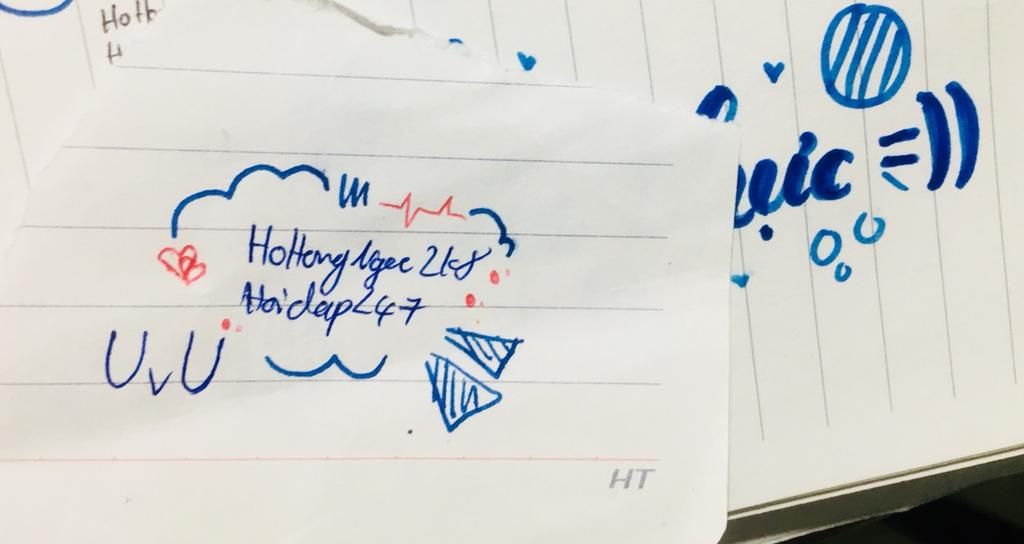 Hoth
H
HoHongNgoc2k8
Hoidap247
UvU
=))
HT